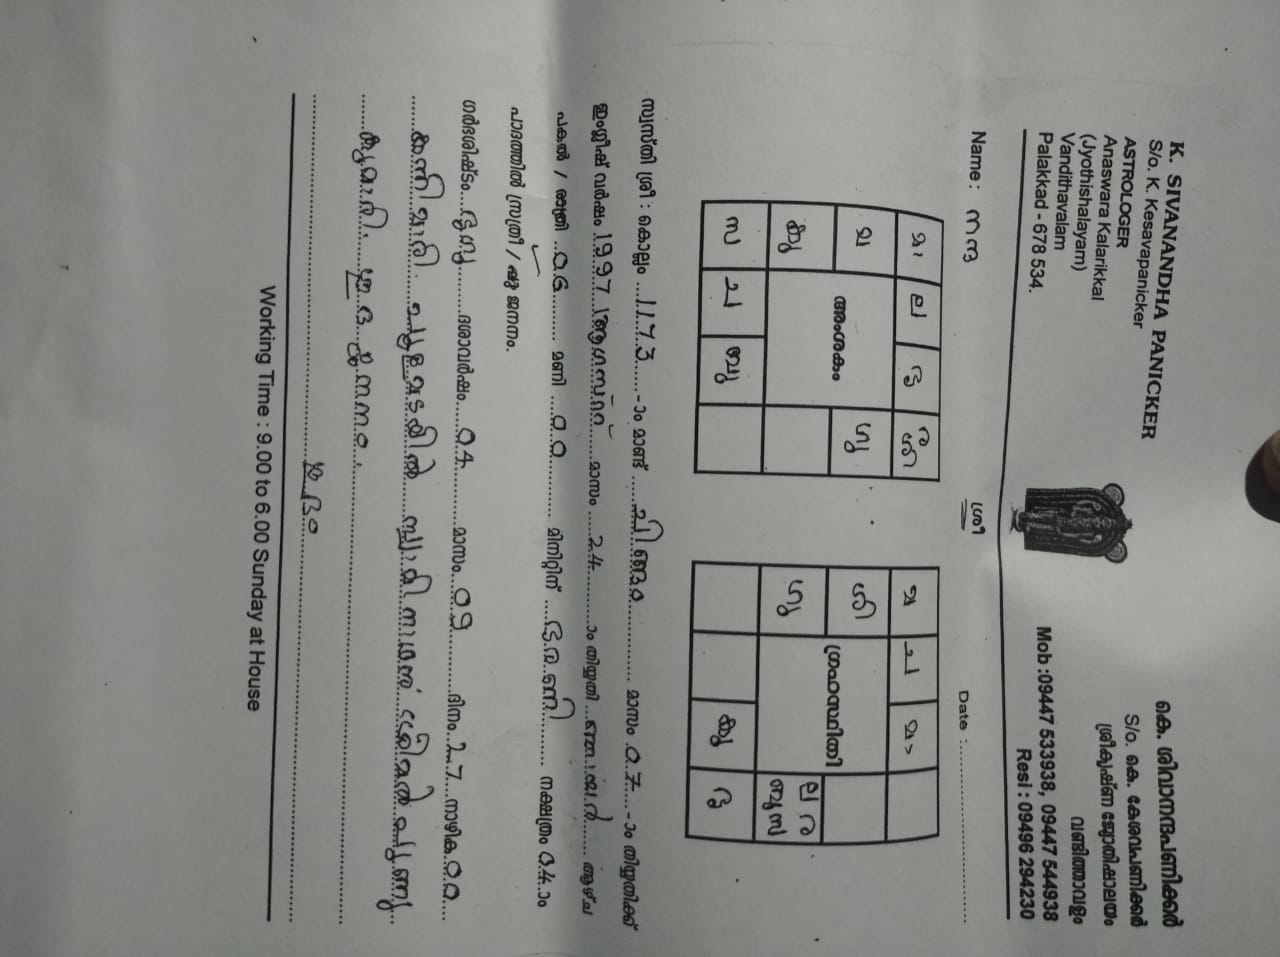 K. SIVANANDHA PANICKER
S/o. K. Kesavapanicker
ASTROLOGER
Anaswara Kalarikkal
(Jyothishalayam)
Vandithavalam
Palakkad - 678 534.
കെ. ശിവാനന്ദപണിക്കർ
S/o. കെ. കേശവപണിക്കർ
ശ്രീകൃഷ്ണ ജ്യോതിഷാലയം
വണ്ടിത്താവളം
Mob :09447 533938, 09447 544938
Resi : 09496 294230
Name : നന്ദ
ശ്രീ
Date :
മാ ല ര ശി
മ ഗു
കു
സ ച ബു
അംശകം
മ ച മാ
ശി
ഗു ല ര ബു സ
കു ശു
ഗ്രഹസ്ഥിതി
സ്വസ്തി ശ്രീ : കൊല്ലം 1173 -ാം മാണ്ട് ചിങ്ങം മാസം 07 -ാം തിയ്യതിക്ക്
ഇംഗ്ലീഷ് വർഷം 1997 ആഗസ്റ്റ് മാസം 24 ാം തിയ്യതി ഞായർ ആഴ്ച
പകൽ / രാത്രി 06 മണി 00 മിനിറ്റിന് ഭരണി നക്ഷത്രം 04 ാം
പാദത്തിൽ സ്ത്രീ / പു ജനനം.
ഗർഭശിഷ്ടം ശുക്ര ദശാവർഷം 04 മാസം 09 ദിനം 27 നാഴിക 00
കന്നിമാരി സ്വാമിനാഥൻ
കുമാരി
ശുഭം
Working Time : 9.00 to 6.00 Sunday at House